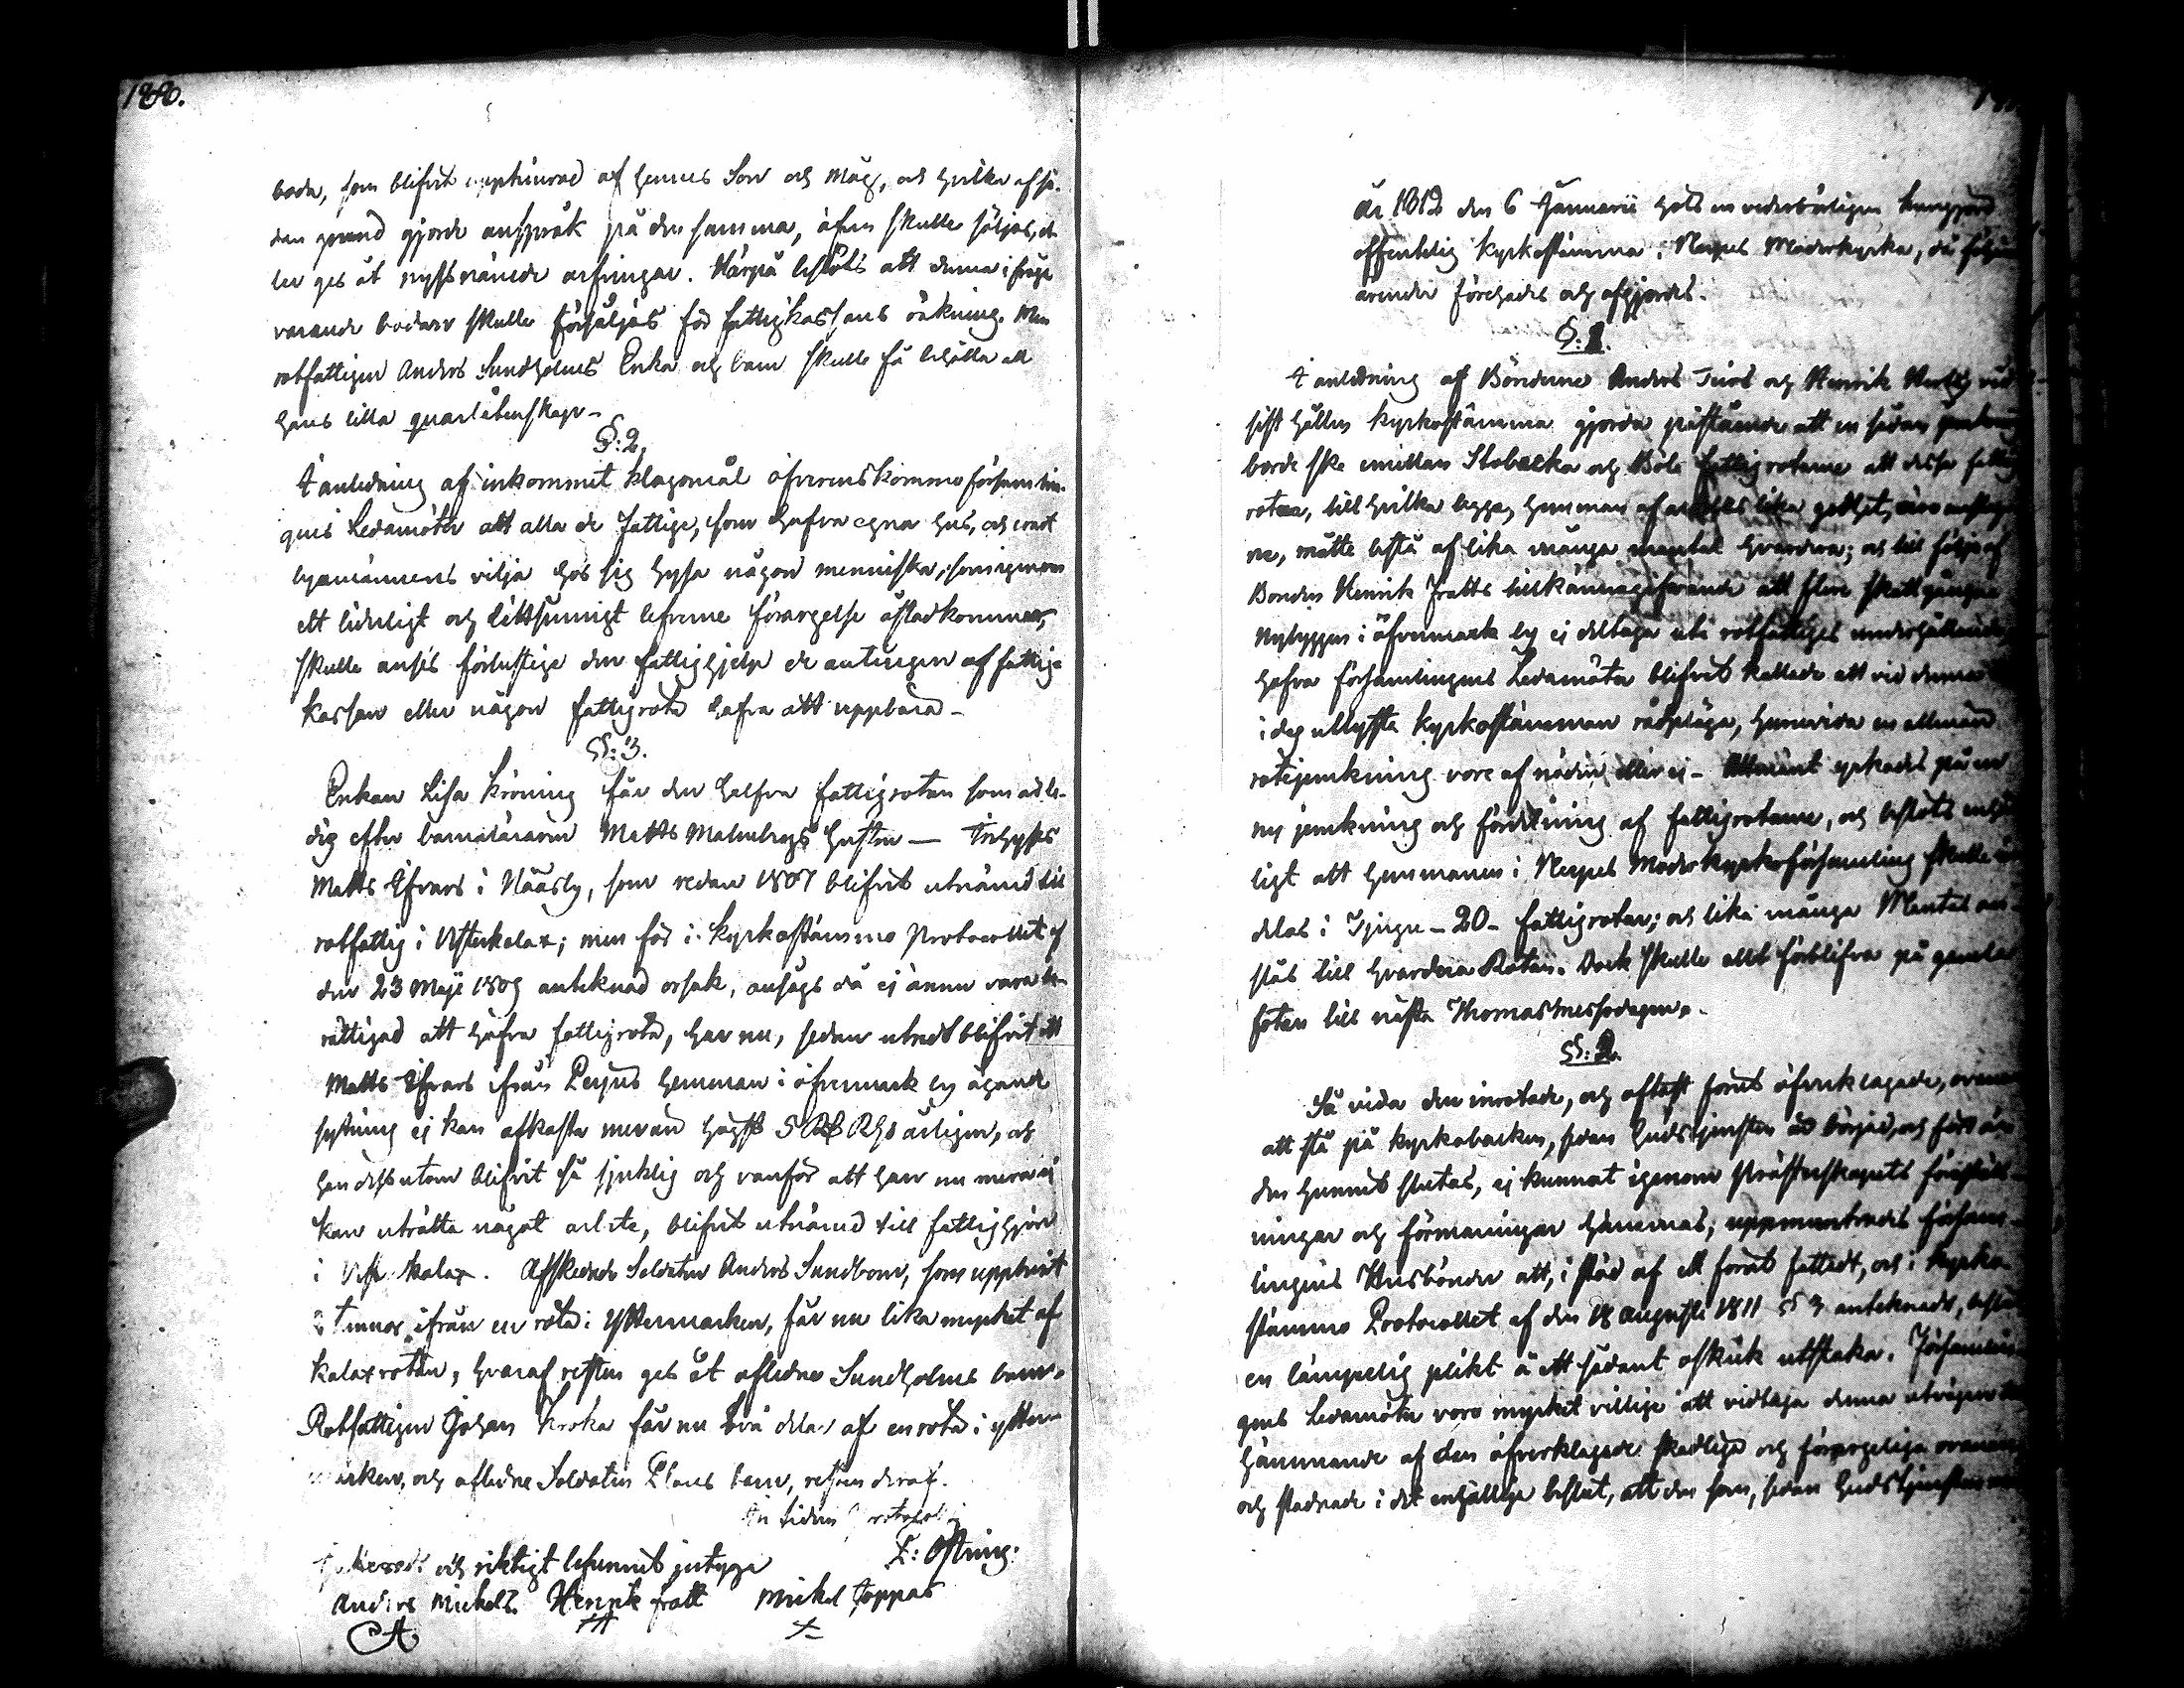 180.
boda, som blifvit upptimrad af hennes Son och Måg, och hvilka af så-
dan grund gjorde anspråk på den samma, äfven skulle säljas, el-
ler ges åt nyssnämnde arfvingar. Härpå beslöts att denna i fråga
varande bodan skulle försäljas för fattigkassans räkning. Men
rotfattigen Anders Sundholms Enka och barn skulle få behålla all
hans lilla quarlåtenskap.
§: 2.
I anledning af inkommit klagomål öfverenskommo försam̅lin-
gens Ledamöter att alla de Fattige, som hafva egna hus, och emot
byamännens vilja hos sig hysa någon menniska, som igenom
ett liderligt och lättsinnigt lefverne förargelse åstadkommer,
skulle anses förlustige den fattighjelp de antingen af fattig-
kassan eller någon fattigrota hafva att uppbära.
§: 3.
Enkan Lisa Kröning får den halfva fattigrotan som är le-
dig efter barnalärarn Matts Malmbergs hustru — Inhyses
Matts Efvars i Nääsby, som redan 1807 blifvit utnämd till
rotfattig i Vesterkalax; men för i Kyrkostämmo Protocollet af
den 23 Maji 1809 anteknad orsak, ansågs då ej ännu vara be-
rättigad att hafva fattigrota, har nu, sedan utredt blifvit att
Matts Efvars ifrån Perjus hemman i öfvermark by ägande
sytning ej kan afkasta mer än högst 5 Rd Rgs årligen, och
han dessutom blifvit så sjuklig och vanför att han nu mera ej
kan uträtta något arbete, blifvit utnämd till fattighjon
i Vest. Kalax. Afskedade Soldaten Anders Sundbom, som uppburit
2 tunnor ifrån en rota i Yttermarken, får nu lika mycket af
Kalaxrotan, hvaraf resten ges åt aflidne Sundholms barn.
Rotfattigen Johan Kroka får nu två delar af en rota i ytter-
marken, och aflidne Soldaten Plans barn, resten deraf.
In fidem Protocolli
E: Östring.
och riktigt befunnit, intyga
Anders Mickels. Henrik fratt Mickel Joppas
år 1812 den 6 Januarii hölts en vederbörligen kungjord
offentelig Kyrkostämma i Nerpes Moderkyrka, då följande
ärender förehades och afgjordes.
§: 1.
I anledning af Bönderne Anders Juos och Henrik vid
sist hållen kyrkostämma gjorda påstående att en sådan jemkning
borde ske emellan Stobacka och Böle fattigrotarne att dessa fattig-
rotar, till hvilka lägga hemman af lika godhet,
ne, måtte bestå af lika många mantal hvardera; och till följe af
Bonden Henrik Fratts tillkännagifvande att flere skattgångne
Nybyggen i öfvermark by ej deltaga uti rotfattiges underhållande,
hafva församlingens Ledamöter blifvit kallade att vid denna
i dag utlysta kyrkostämman rådpläga, huruvida en allmän
rotejemkning vore af nöden eller ej. Allmänt yrkades på en
ny jemkning och fördelning af fattigrotarne, och beslöts enhäl-
ligt att hemmanen i Nerpes Moderkyrkoförsamling skulle in-
delas i Tjugu - 20 - fattigrotar; och lika många Mantal an-
slås till hvardera Rotan. Dock skulle allt förblifva på gamla
foten till nästa Thomasmessodagen.
§: 2.
Så vida den inrotade, och oftast förut öfverklagade, ovanan
att stå på kyrkobacken, sedan Gudstjensten är börjad, och förr än
den hunnit slutas, ej kunnat igenom Prästerskapets föreställ-
ningar och förmaningar hämmas, uppmuntrades försam-
lingens Husbönder att, i stöd af ett förut fattadt, och i kyrko-
stämmo Protocollet af den 18 Augusti 1811 § 3 anteknadt, beslut
en lämpelig plikt å ett sådant oskick utstaka. Församlin-
gens Ledamöter voro mycket villige att vidtaga denna utvägen till
hämmande af den öfverklagade skadliga och förargeliga ovanan
och stadnade i det enhällige beslut, att den som, sedan Gudstjensten